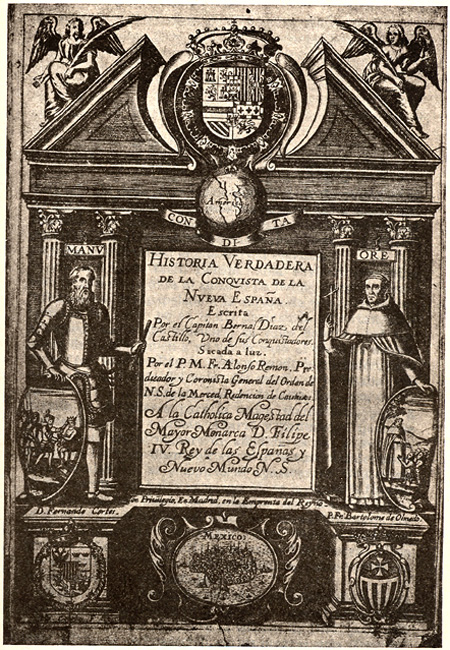 America
CON DI TA
MANV
ORE
HISTORIA VERDADERA
DE LA CONQVISTA DE LA
NVEVA ESPAÑA.
Escrita
Por el Capitan Bernal Diaz, del
Castillo, Vno de sus Conquistadores.
Sacada a luz.
Por el P. M. Fr. Alonso Remon, Pre-
dicador y Coronista General del Orden de
N. S. de la Merced, Redencion de Cautivos.
A la Catholica Magestad del
Mayor Monarca D. Filipe
IV. Rey de las Espanas y
Nuevo Mundo N. S.
Con Privilegio, En Madrid, en la Emprenta del Reyno
D. Fernando Cortes.
P. Fr. Bartolome de Olmedo
MEXICO